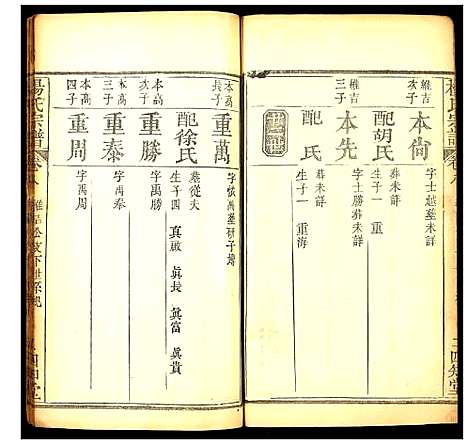 楊氏宗譜
卷八
四知堂
維吉
次子
本尚
字士越墓未詳
配胡氏
葬未詳
生子一 重
維吉
三子
本先
字士勝葬未詳
配 氏
葬未詳
生子一 重海
本高
長子
重萬
配徐氏
墓從夫
生子四 真啟 真長 真富 真貴
本高
次子
重勝
字萬勝
本高
三子
重泰
字萬泰
本高
四子
重周
字萬周
楊氏宗譜
卷八
四知堂